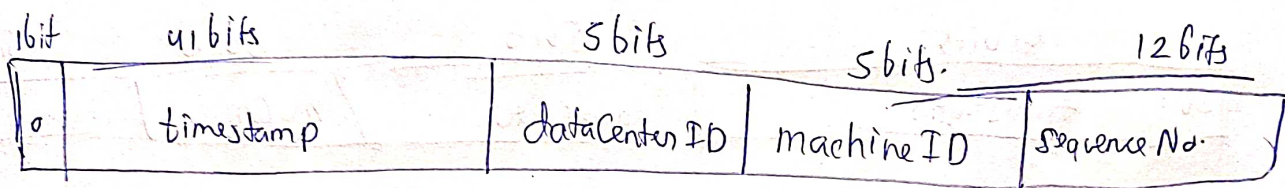 1bit 41 bits 5 bits 5 bits. 12 bits
0 timestamp dataCenter ID machine ID sequence No.